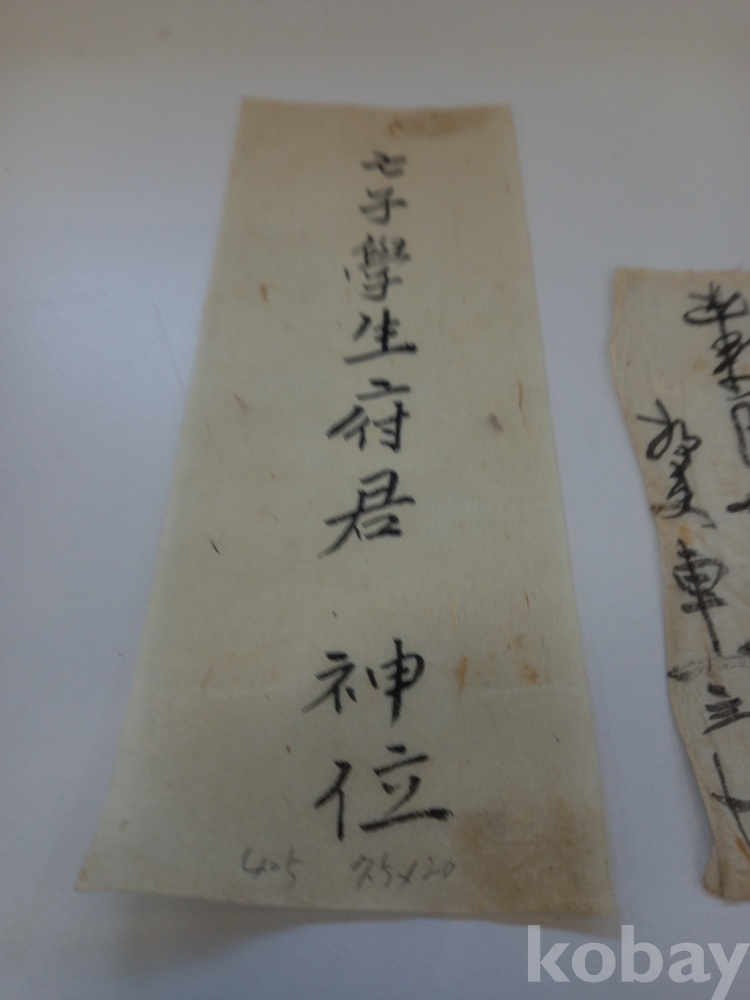 亡子學生府君 神位
405 7.5x20
車
三十
kobay